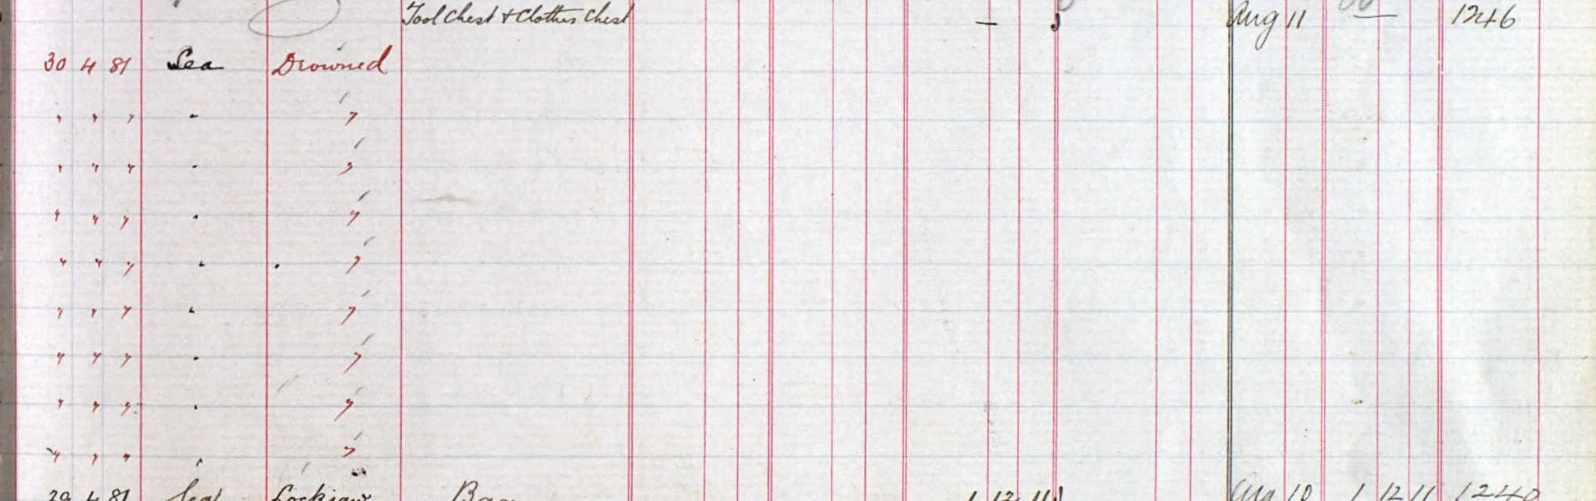 Tool Chest & Clothes Chest — Aug 11 — 1246
30 4 81 Sea Drowned
" " " " "
" " " " "
" " " " "
" " " " "
" " " " "
" " " " "
" " " " "
" " " " "
29 4 81 Sea Lockjaw Bag 1 12 11 Aug 10 1 12 11 1240